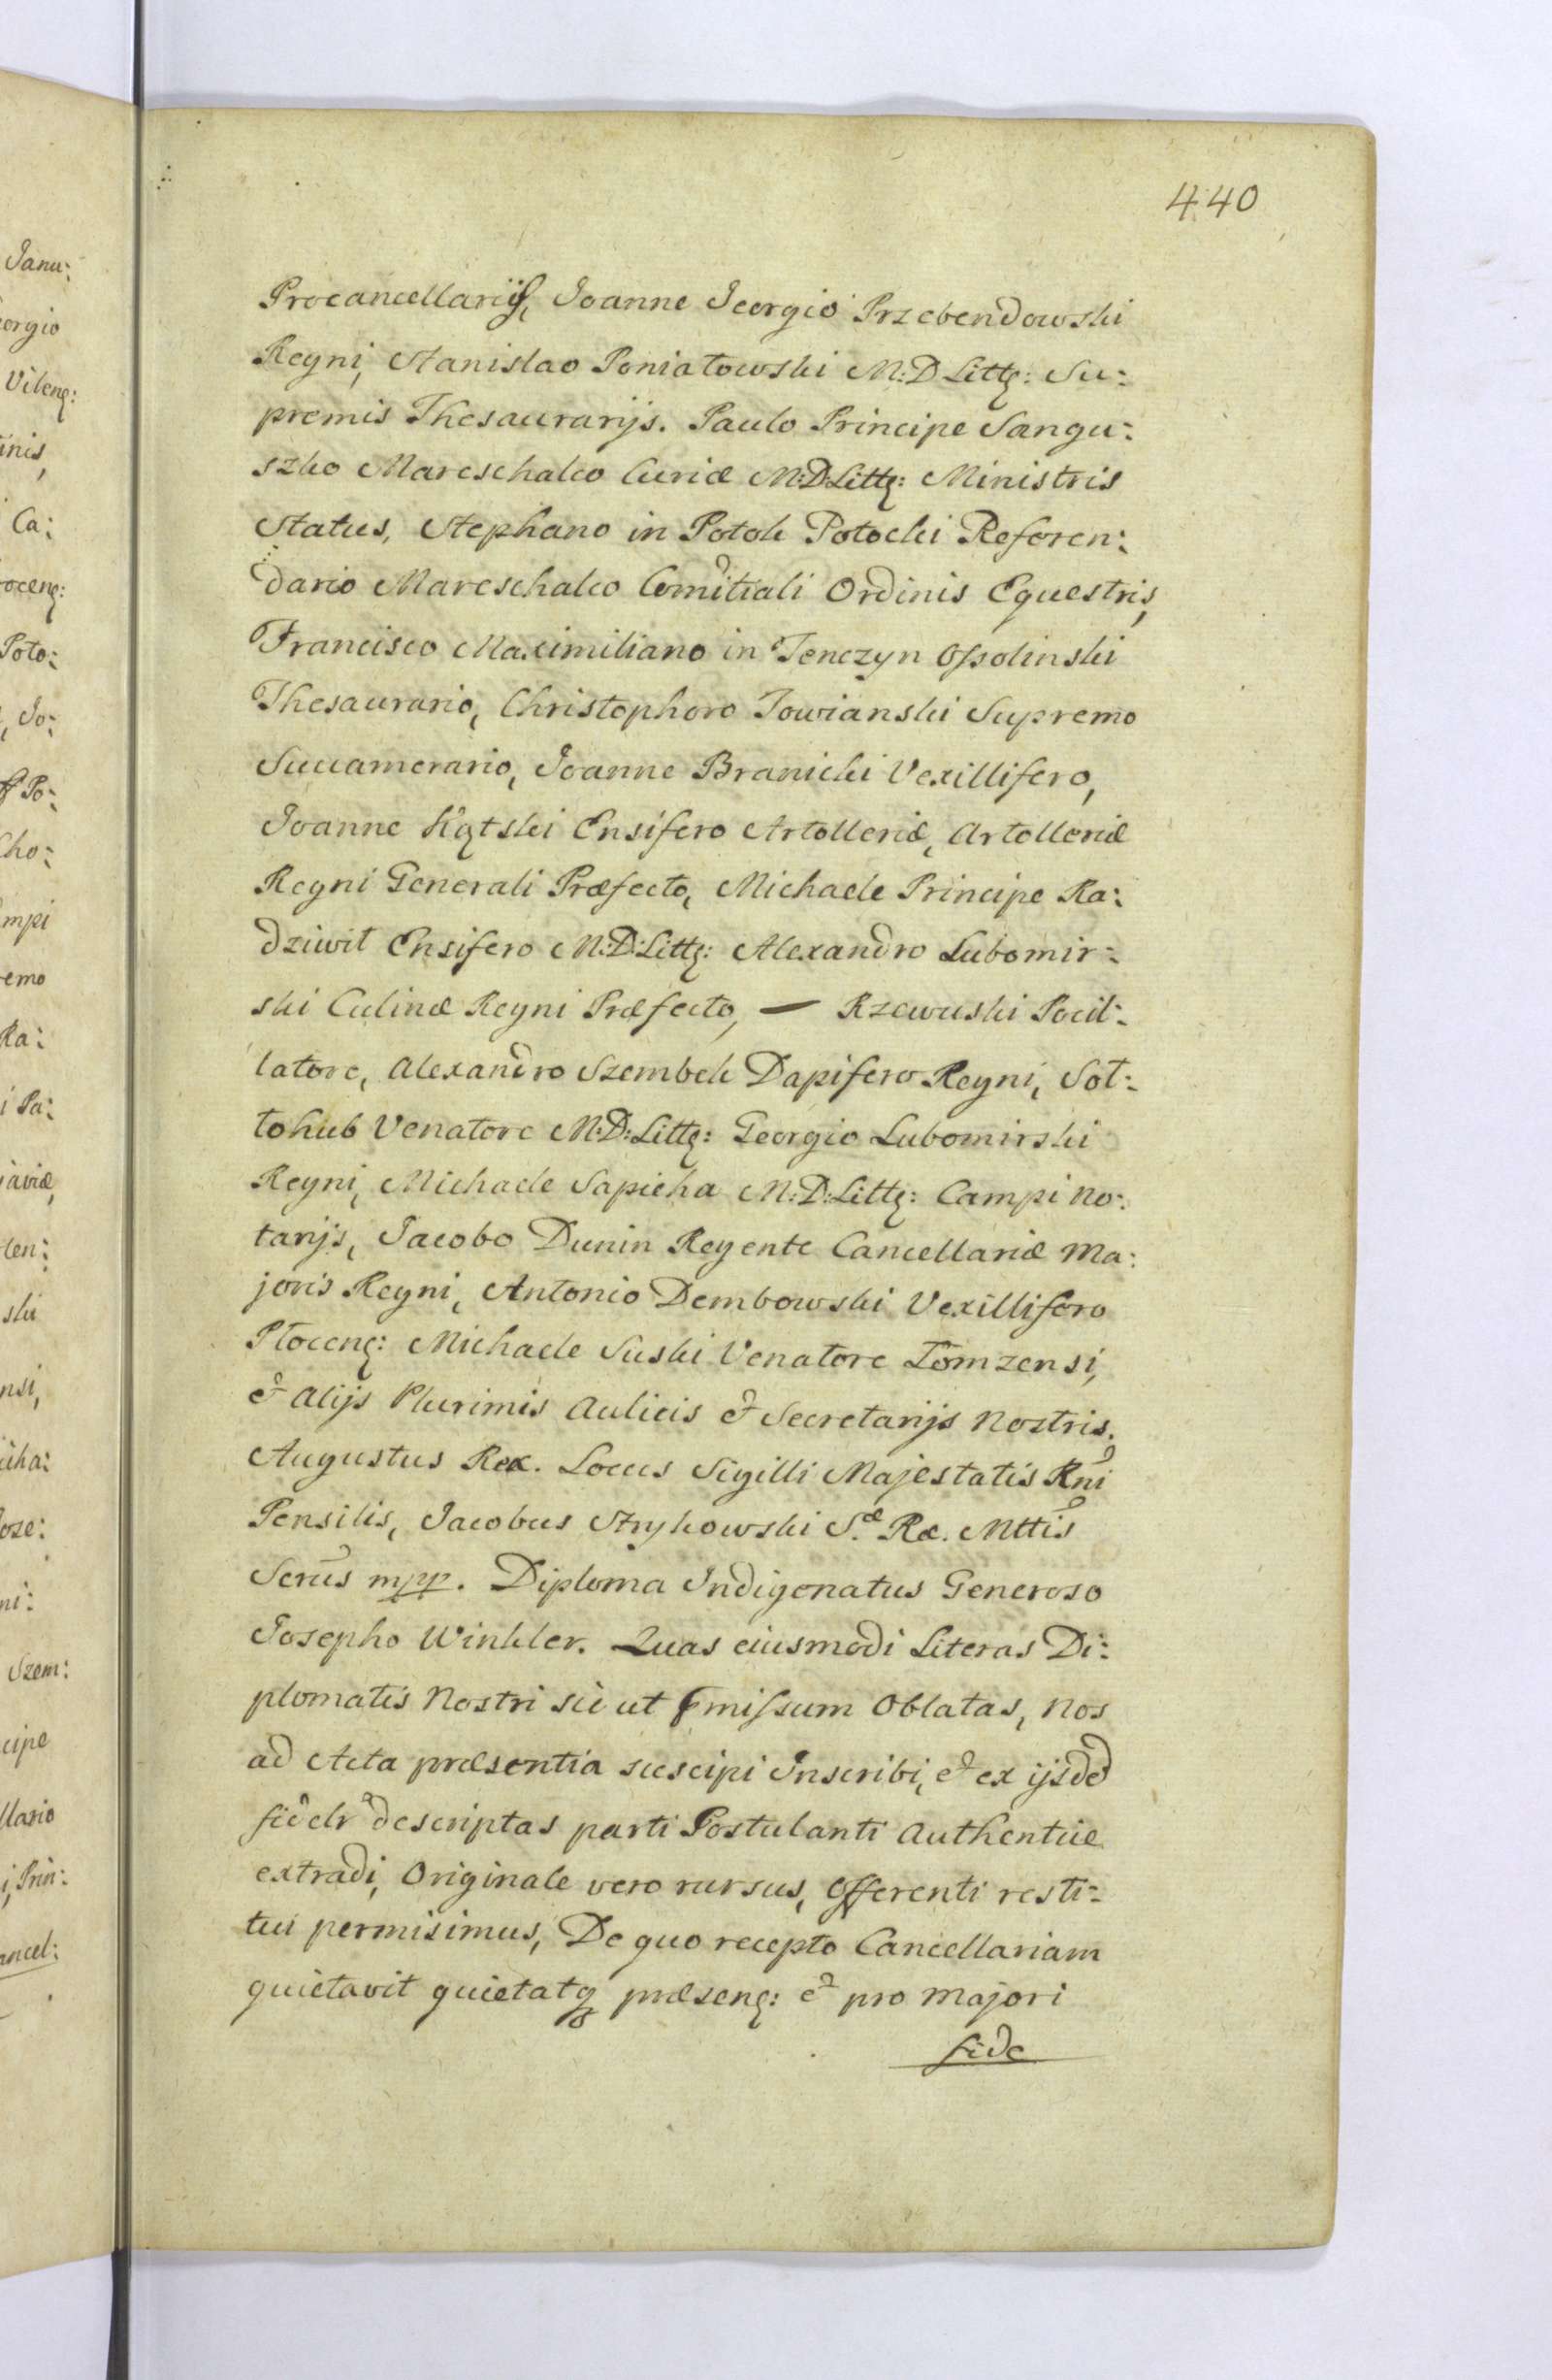 440
Procancellarijs, Joanne Georgio Przebendowski
Regni, Stanislao Poniatowski M: D Littę: Su:
premis Thesaurarijs. Paulo Principe Sangu:
szko Mareschalco Curiæ M:D:Littę: Ministris
Status, Stephano in Potok Potocki Referen:
dario Mareschalco Comitiali Ordinis Equestris,
Francisco Maximiliano in Tenczyn Ossolinski
Thesaurario, Christophoro Towianski Supremo
Succamerario, Joanne Branicki Vexillifero,
Joanne Kątski Ensifero Artolleriæ, Artolleriæ
Regni Generali Præfecto, Michaele Principe Ra:
dziwił Ensifero M:D:Littę: Alexandro Lubomir:
ski Culinæ Regni Præfecto, — Rzewuski Pocil:
latore, Alexandro Szembek Dapifero Regni, Soł:
łohub Venatore M:D:Littę: Georgio Lubomirski
Regni, Michaele Sapieha M:D:Littę: Campi No:
tarijs, Jacobo Dunin Regente Cancellariæ Ma:
joris Regni, Antonio Dembowski Vexillifero
Płocenę: Michaele Suski Venatore Łomzensi,
et Alijs Plurimis Aulicis et Secretarijs Nostris.
Augustus Rex. Locus Sigilli Majestatis Rni
Pensilis, Jacobus Strykowski S.æ Ræ. Mttis
Serus mpp. Diploma Indigenatus Generoso
Josepho Winkler. Quas eiusmodi Literas Di:
plomatis Nostri sic ut pmissum Oblatas, Nos
ad Acta præsentia suscipi Inscribi, et ex ijsdd
fidelr descriptas parti Postulanti Authentice
extradi, Originale vero rursus, Offerenti resti:
tui permisimus, De quo recepto Cancellariam
quietavit quietatq præsenę: et pro majori
fide
Janu:
eorgio
Vilenę:
inis,
Ca:
ocenę:
Poto:
, Jo:
Po:
Cho:
mpi
remo
Ra:
i Pa:
javiæ,
len:
ski
nsi,
icha:
oze:
ni:
Szem:
cipe
llario
i, Prin:
ancel: